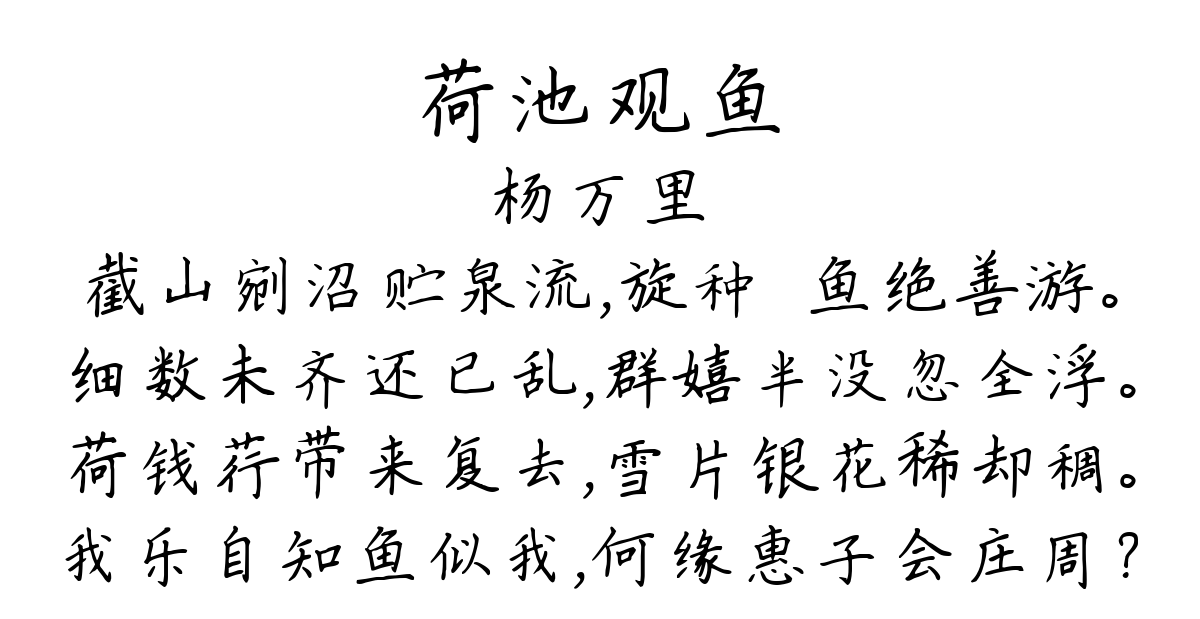 荷池观鱼
杨万里
截山剜沼贮泉流,旋种 鱼绝善游。
细数未齐还已乱,群嬉半没忽全浮。
荷钱荇带来复去,雪片银花稀却稠。
我乐自知鱼似我,何缘惠子会庄周？